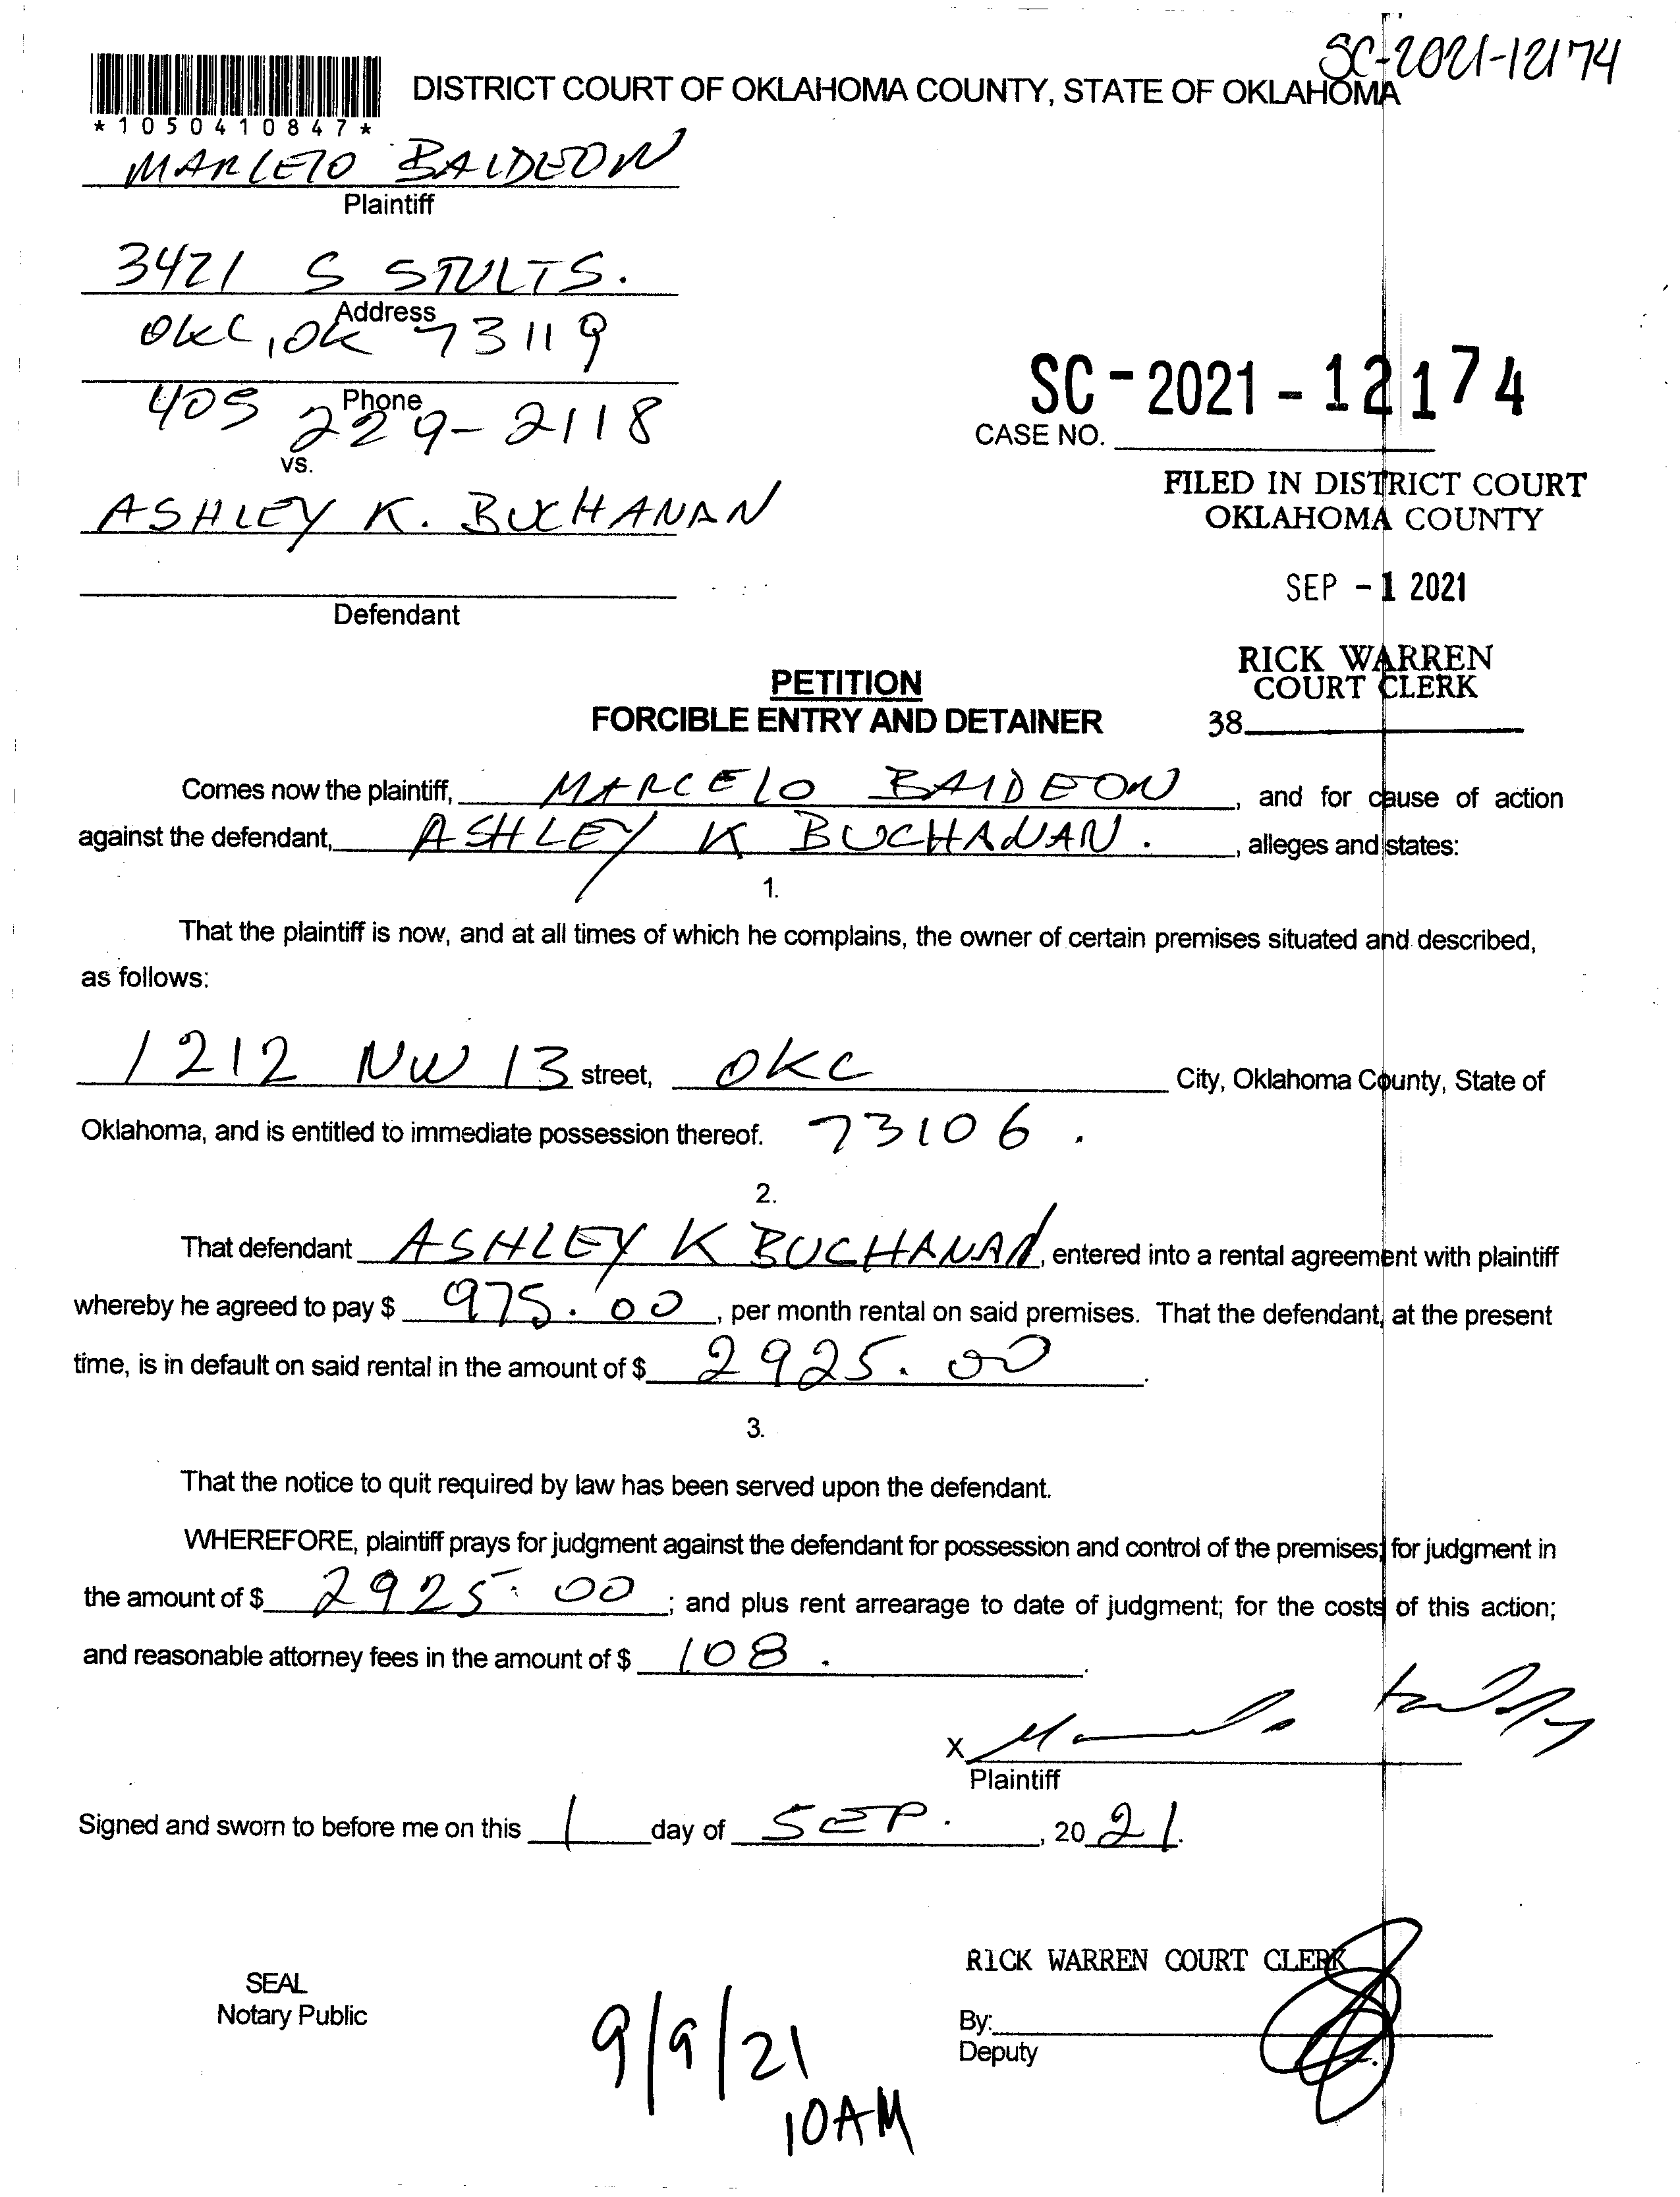 SC-2021-12174
*1050410847*
DISTRICT COURT OF OKLAHOMA COUNTY, STATE OF OKLAHOMA
MARCELO BALDEON
Plaintiff
3421 S STULTS.
Address
OKC, OK 73119
Phone
405 229-2118
vs.
ASHLEY K. BUCHANAN
Defendant
SC-2021-12174
CASE NO.
FILED IN DISTRICT COURT
OKLAHOMA COUNTY
SEP -1 2021
RICK WARREN
COURT CLERK
38
PETITION
FORCIBLE ENTRY AND DETAINER
Comes now the plaintiff, MARCELO BALDEON, and for cause of action
against the defendant, ASHLEY K BUCHANAN., alleges and states:
1.
That the plaintiff is now, and at all times of which he complains, the owner of certain premises situated and described,
as follows:
1212 NW 13 street, OKC City, Oklahoma County, State of
Oklahoma, and is entitled to immediate possession thereof. 73106.
2.
That defendant ASHLEY K BUCHANAN, entered into a rental agreement with plaintiff
whereby he agreed to pay $ 975.00, per month rental on said premises. That the defendant, at the present
time, is in default on said rental in the amount of $ 2925.00.
3.
That the notice to quit required by law has been served upon the defendant.
WHEREFORE, plaintiff prays for judgment against the defendant for possession and control of the premises; for judgment in
the amount of $ 2925.00; and plus rent arrearage to date of judgment; for the costs of this action;
and reasonable attorney fees in the amount of $ 108.
X
Plaintiff
Signed and sworn to before me on this 1 day of SEP., 2021.
SEAL
Notary Public
9/9/21
10AM
RICK WARREN COURT CLERK
By:
Deputy